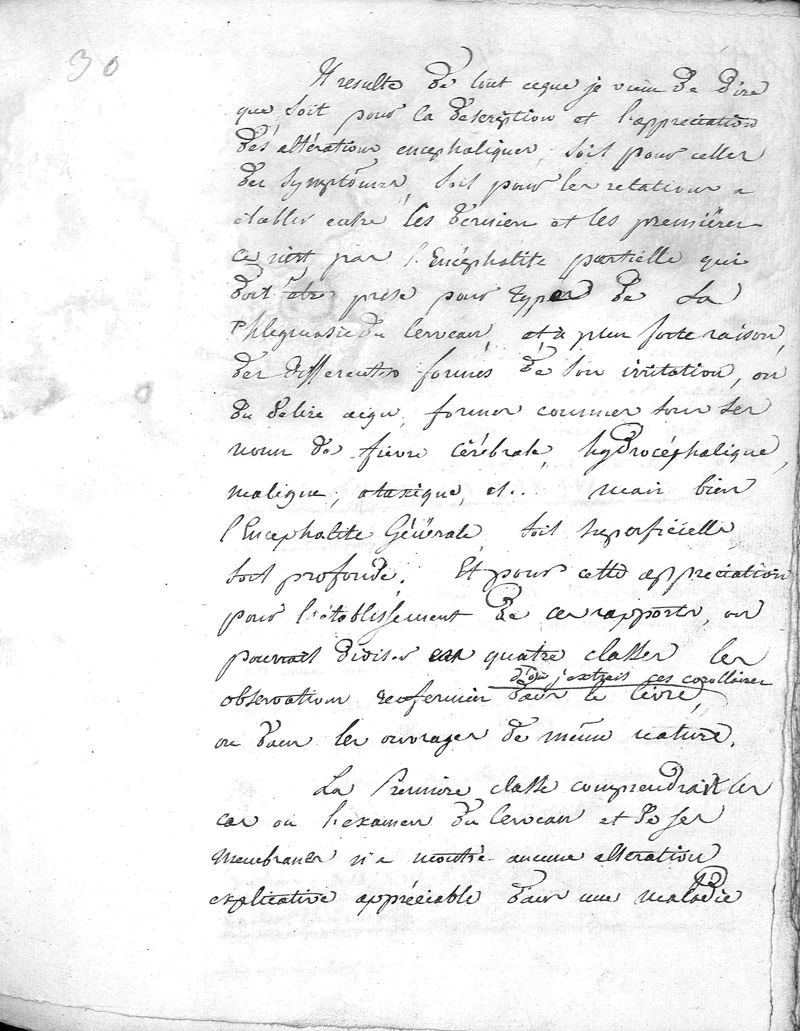 30
Il resulte de tout ceque je viens de dire
que, soit pour la description et l'appreciation
des altérations encephaliques, soit pour celles
des symptômes, soit pour les relations a
établir entre les derniers et les premières
ce n'est pas l'Encéphalite partielle qui
doit être prise pour type de la
Phlegmasie du Cerveau, et à plus forte raison,
des differentes formes de son irritation, ou
du délire aigu, formes connues sous les
noms de fievre cérébrale, hydrocéphalique,
maligne, ataxique, etc.. mais bien
l'Encephalite Générale, soit superficielle
soit profonde. Et pour cette appreciation
pour l'établissement de ces rapports, on
pourrait diviser en quatre classes les
d'où j'extrais ces corollaires
observations renfermées dans le livre,
ou dans les ouvrages de même nature.
La Première classe comprendrait les
cas où l'examen du Cerveau et de ses
membranes n'a montré aucune alteration
explicative appréciable dans une maladie